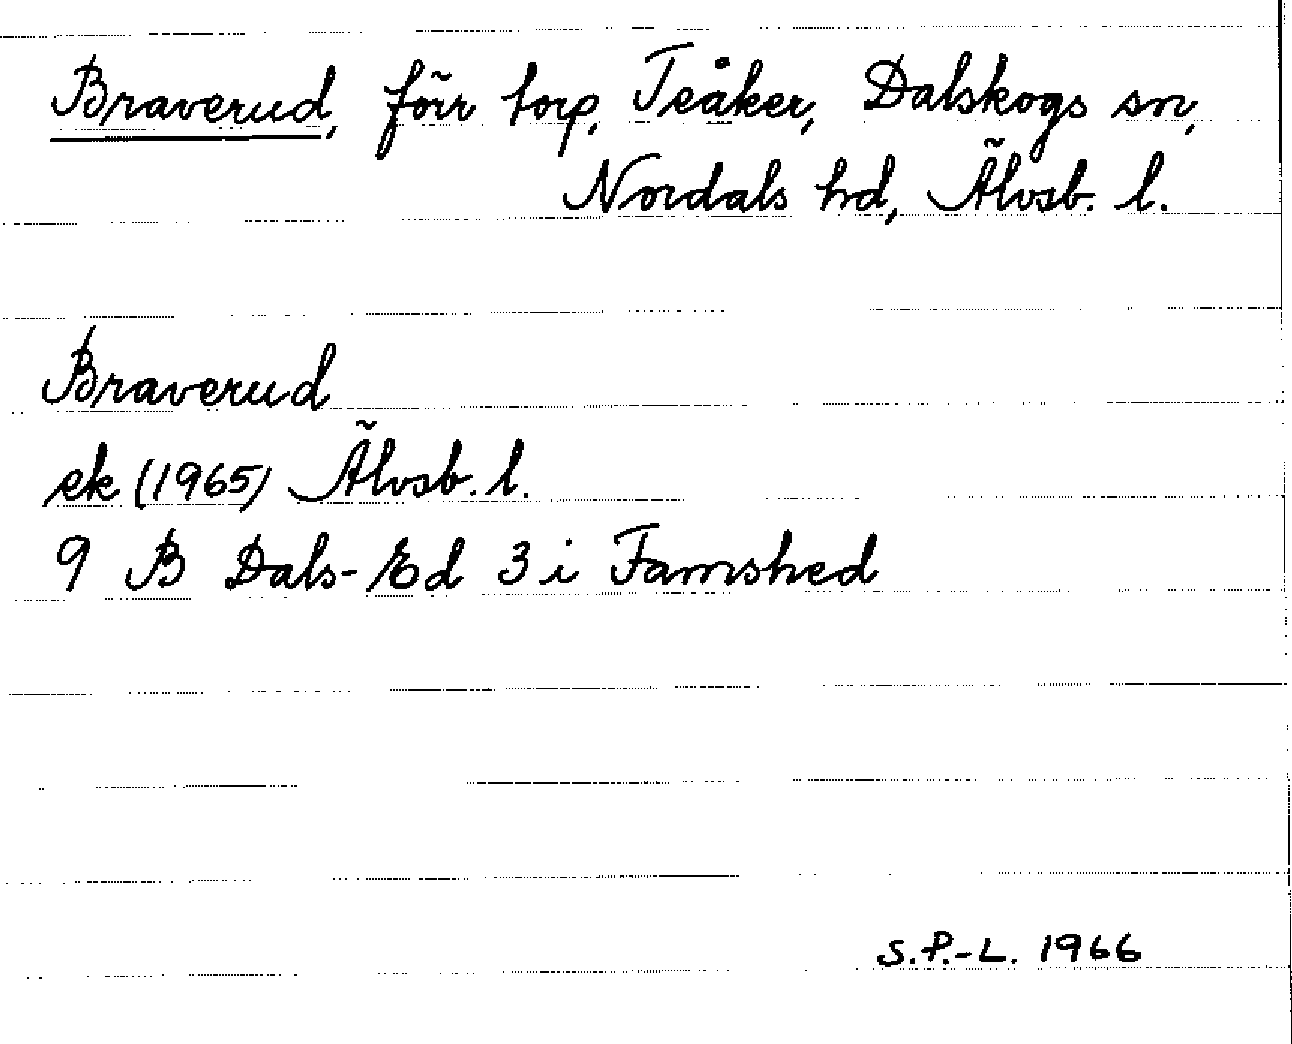 Braverud, förr torp, Teåker, Dalskogs sn,
Nordals hd, Älvsb. l.
Braverud
ek (1965) Älvsb. l.
9 B Dals-Ed 3 i Famshed
S.P.-L. 1966